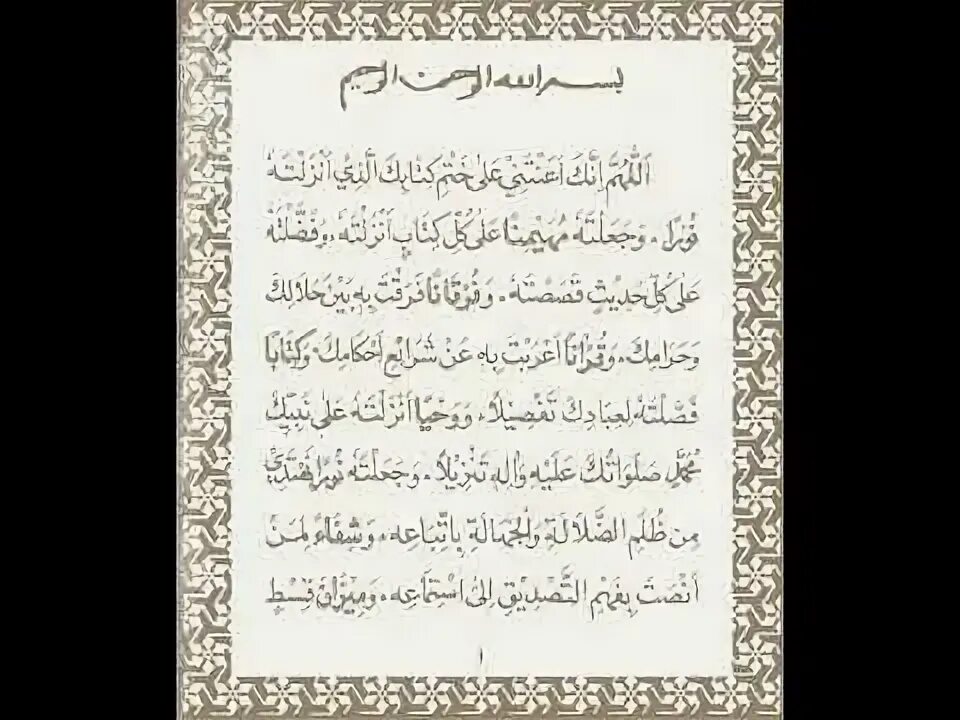 بسم الله الرحمن الرحيم
اَللّٰهُمَّ اِنَّكَ اَعَنْتَنِيْ عَلىٰ خَتْمِ كِتَابِكَ الَّذِيْ اَنْزَلْتَهُ
نُوْرًا، وَجَعَلْتَهُ مُهَيْمِنًا عَلىٰ كُلِّ كِتَابٍ اَنْزَلْتَهُ، وَفَضَّلْتَهُ
عَلىٰ كُلِّ حَدِيْثٍ قَصَصْتَهُ، وَفُرْقَانًا فَرَقْتَ بِهِ بَيْنَ حَلَالِكَ
وَحَرَامِكَ، وَقُرْاٰنًا اَعْرَبْتَ بِهِ عَنْ شَرَائِعِ اَحْكَامِكَ وَكِتَابًا
فَصَّلْتَهُ لِعِبَادِكَ تَفْصِيْلًا، وَوَحْيًا اَنْزَلْتَهُ عَلىٰ نَبِيِّكَ
مُحَمَّدٍ صَلَوَاتُكَ عَلَيْهِ وَاٰلِهِ تَنْزِيْلًا، وَجَعَلْتَهُ نُوْرًا نَهْتَدِيْ
مِنْ ظُلَمِ الضَّلَالَةِ وَالْجَهَالَةِ بِاتِّبَاعِهِ، وَشِفَاءً لِمَنْ
اَنْصَتَ بِفَهْمِ التَّصْدِيْقِ اِلىٰ اسْتِمَاعِهِ، وَمِيْزَانَ قِسْطٍ
١